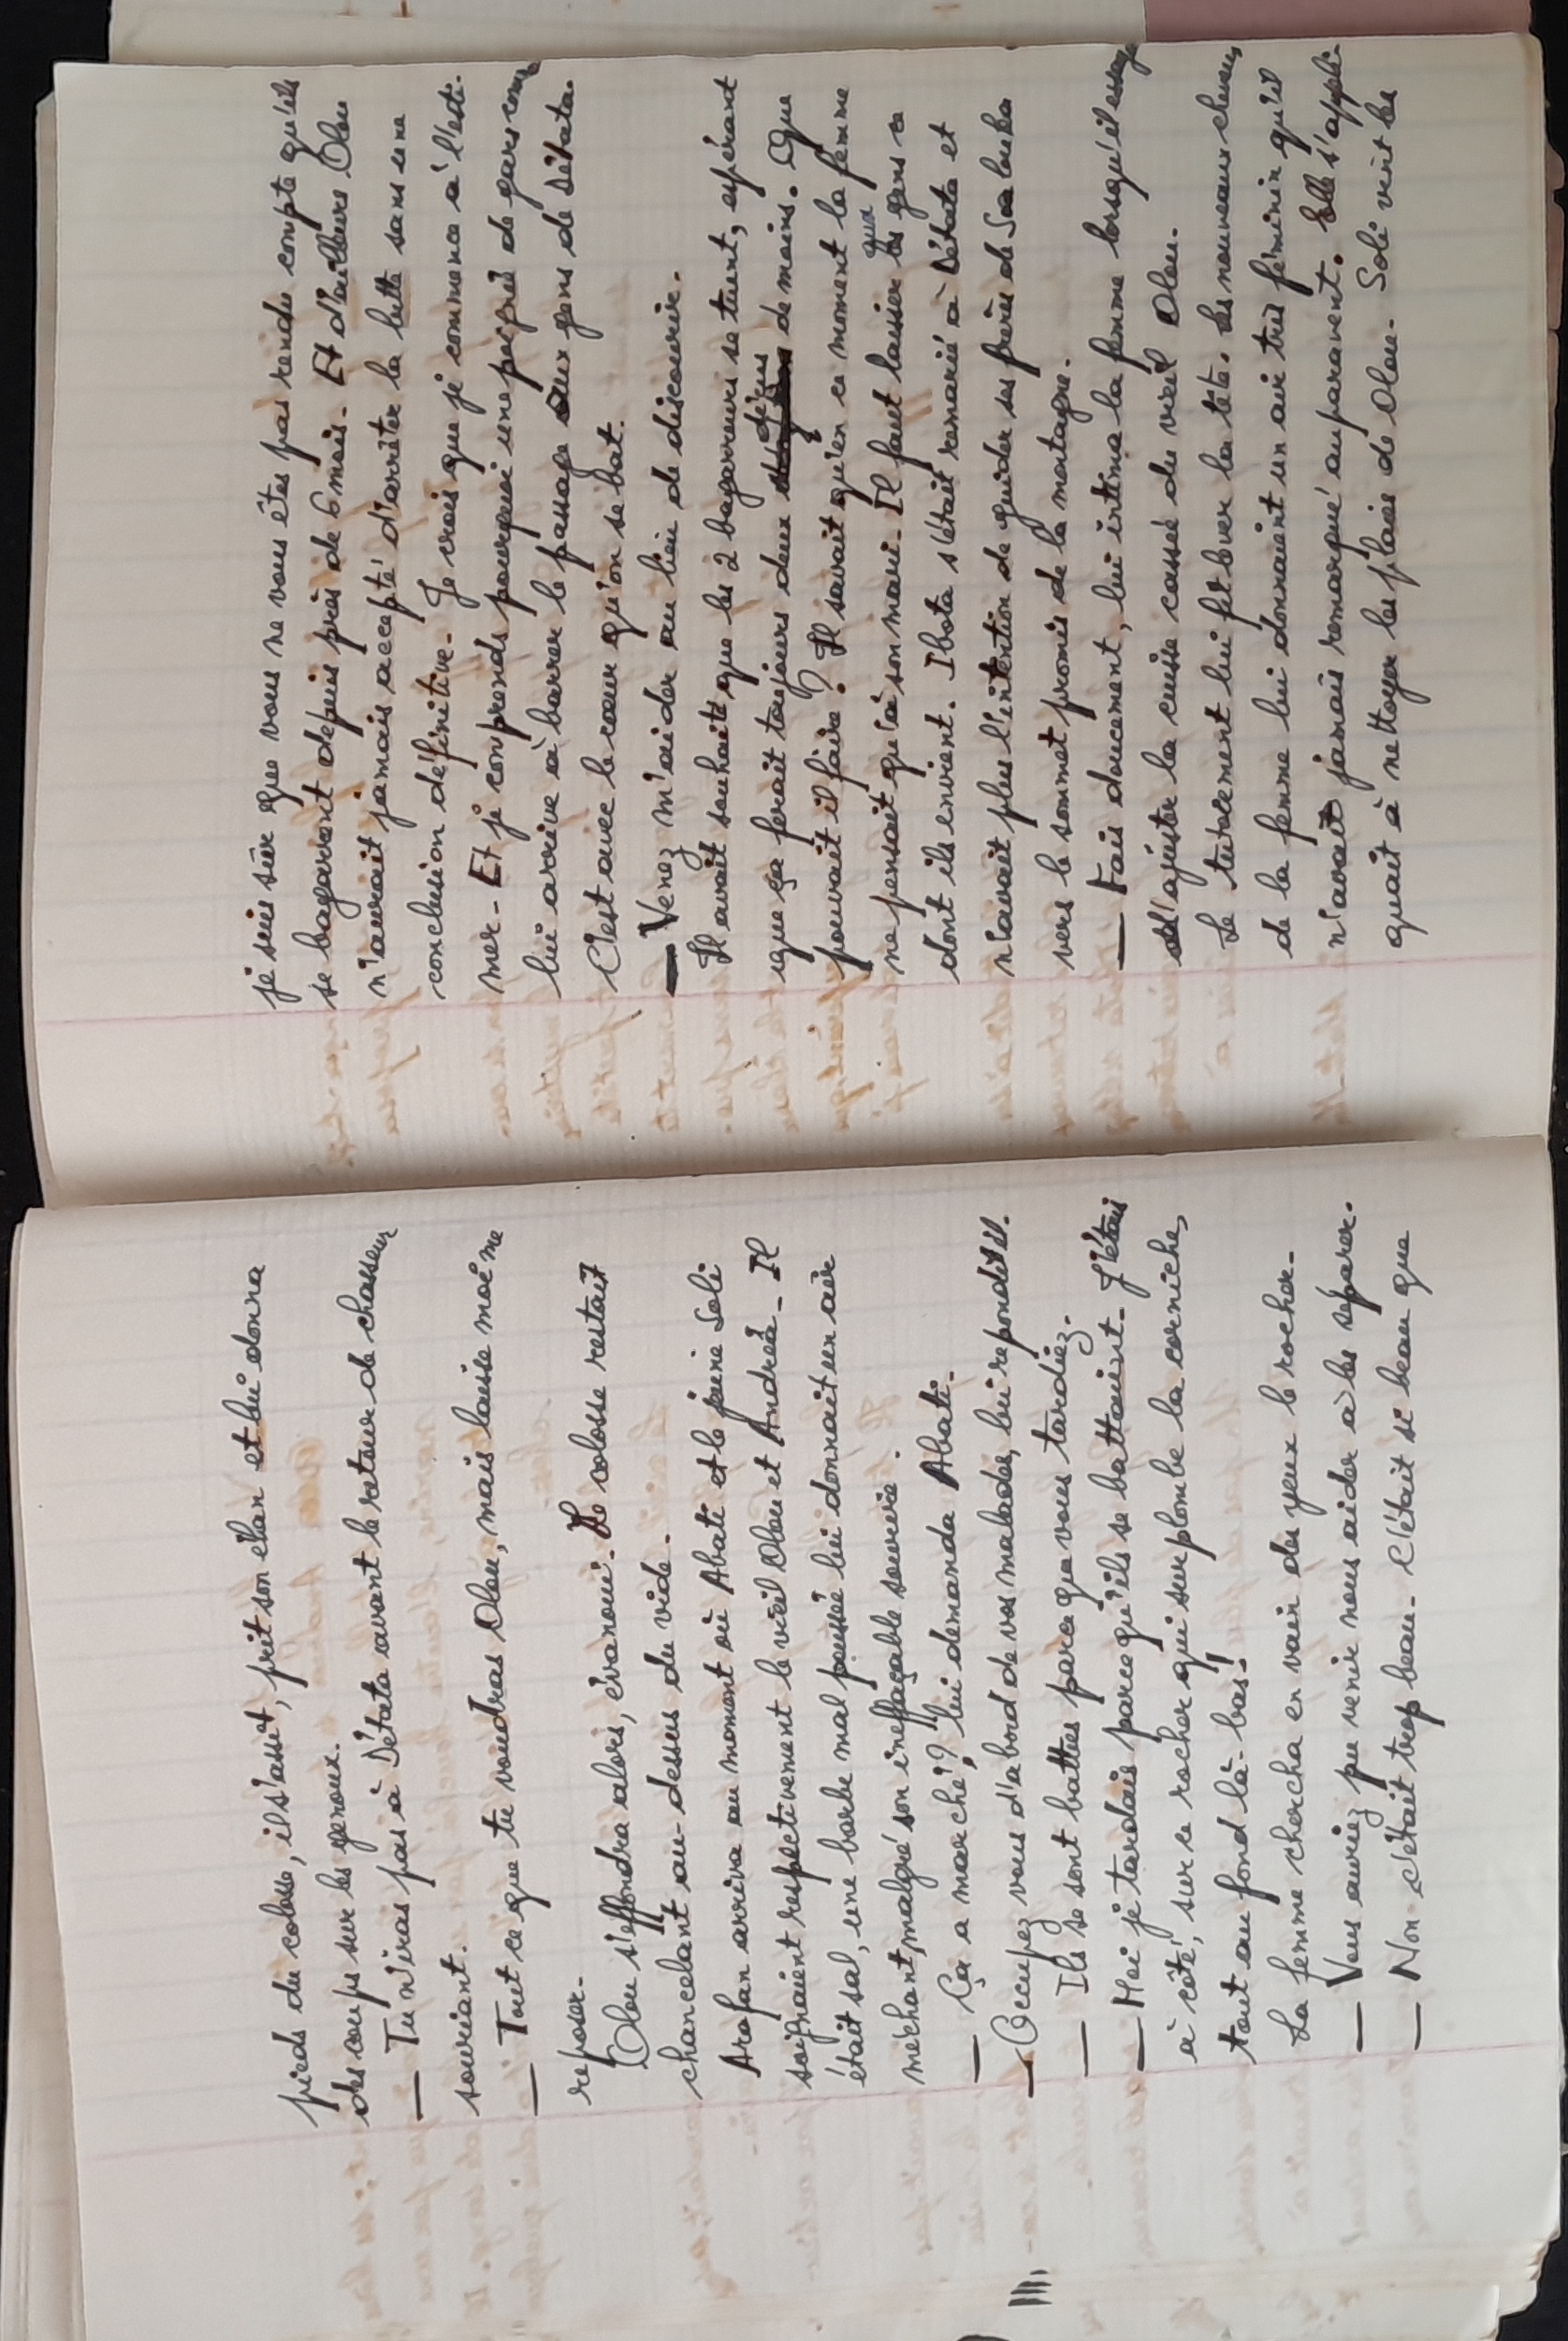 pieds du colosse, il s'assit, prit son élan et lui donna
des coups sur les genoux.
— Tu n'iras pas à Détata avant le retour de chasseur
souriant.
— Tout ce que tu voudras Olou, mais laisse moi me
reposer-
Olou s'effondra alors, évanoui. Le colosse restait
chancelant au-dessus du vide.
Arafan arriva au moment où Abati et le jeune Soli
soignaient respectivement le vieil Olou et Andréa- Il
était sal, une barbe mal poussée lui donnait un air
méchant, malgré son ineffaçable sourire.
— Ça a marché ?, lui demanda Abati.
— Occupez vous d'abord de vos malades, lui repondit il.
— Ils se sont battus parce que vous tardiez.
— Moi je tardais parce qu'ils se battaient- J'étais
à côté, sur ce rocher qui surplombe la corniche,
tout au fond là-bas!
La femme chercha en vain des yeux le rocher-
— Vous auriez pu venir nous aider à les séparer.
— Non c'était trop beau- C'était si beau que
je suis sûr que vous ne vous êtes pas rendu compte qu'ils
se bagarraient depuis près de 6 mois- Et d'ailleurs Olou
n'aurait jamais accepté d'arrêter la lutte sans une
conclusion définitive- Je crois que je commence à l'esti-
mer- Et je comprends pourquoi une poignée de gars comme
lui arrive à barrer le passage aux gens de Détata.
C'est avec le cœur qu'on se bat.
— Venez m'aider au lieu de discourir.
Il avait souhaité que les 2 bagarreurs se tuent, espérant
que ça ferait toujours deux déçus de moins. Que
pouvait il faire ? Il savait qu'en ce moment la femme
ne pensait qu'à son mari- Il faut laisser aux gens ce
dont ils envient. Ibota s'était remarié à Détata et
n'avait plus l'intention de guider ses frères de Saalouba
vers le sommet promis de la montagne.
— Fais doucement, lui intima la femme lorsqu'il essaya
d'ajuster la cuisse cassée du vieil Olou.
Le tutoiement lui fit lever la tête. Les nouveaux cheveux
de la femme lui donnaient un air très féminin qu'il
n'avait jamais remarqué auparavant. Elle s'appli-
quait à nettoyer les plaies de Olou- Soli vint les